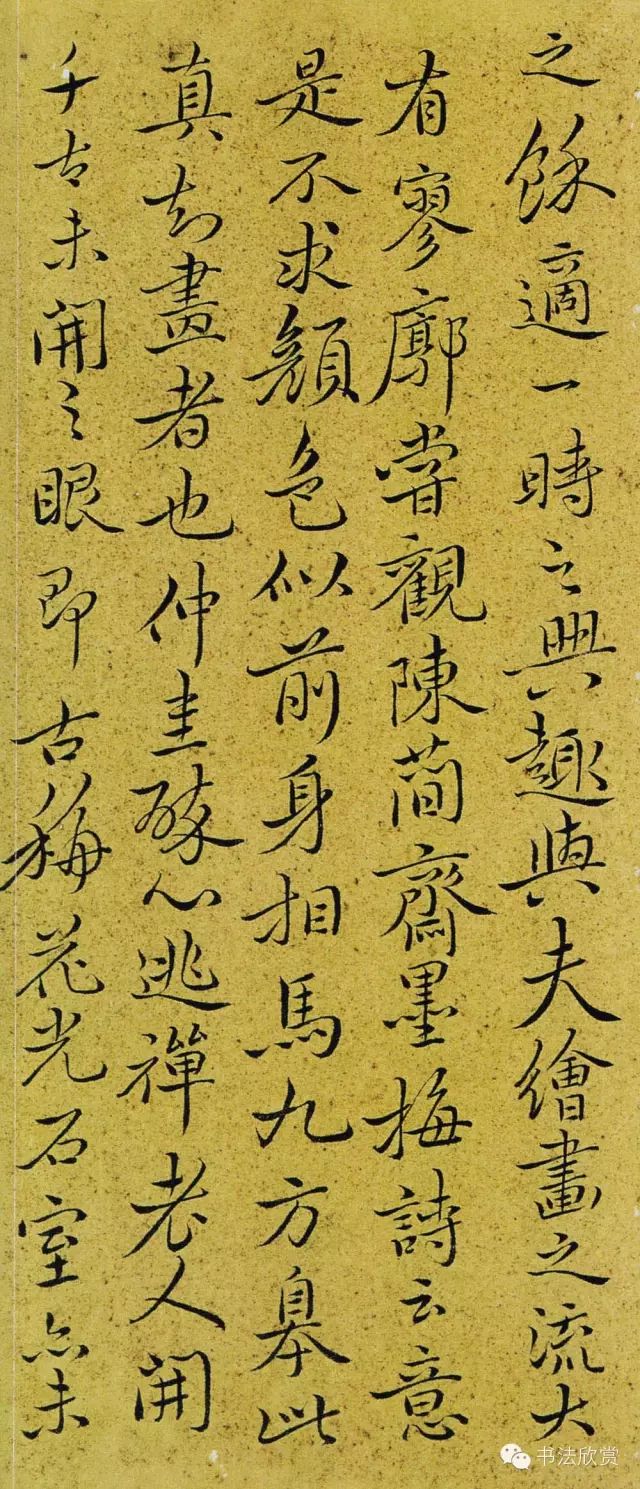 之餘適一時之興趣與夫繪畫之流大
有寥廓嘗觀陳簡齋墨梅詩云意
是不求顔色似前身相馬九方臯此
真知畫者也仲圭醉心逃禪老人開
千古未開之眼即古梅花光石室亦未
书法欣赏